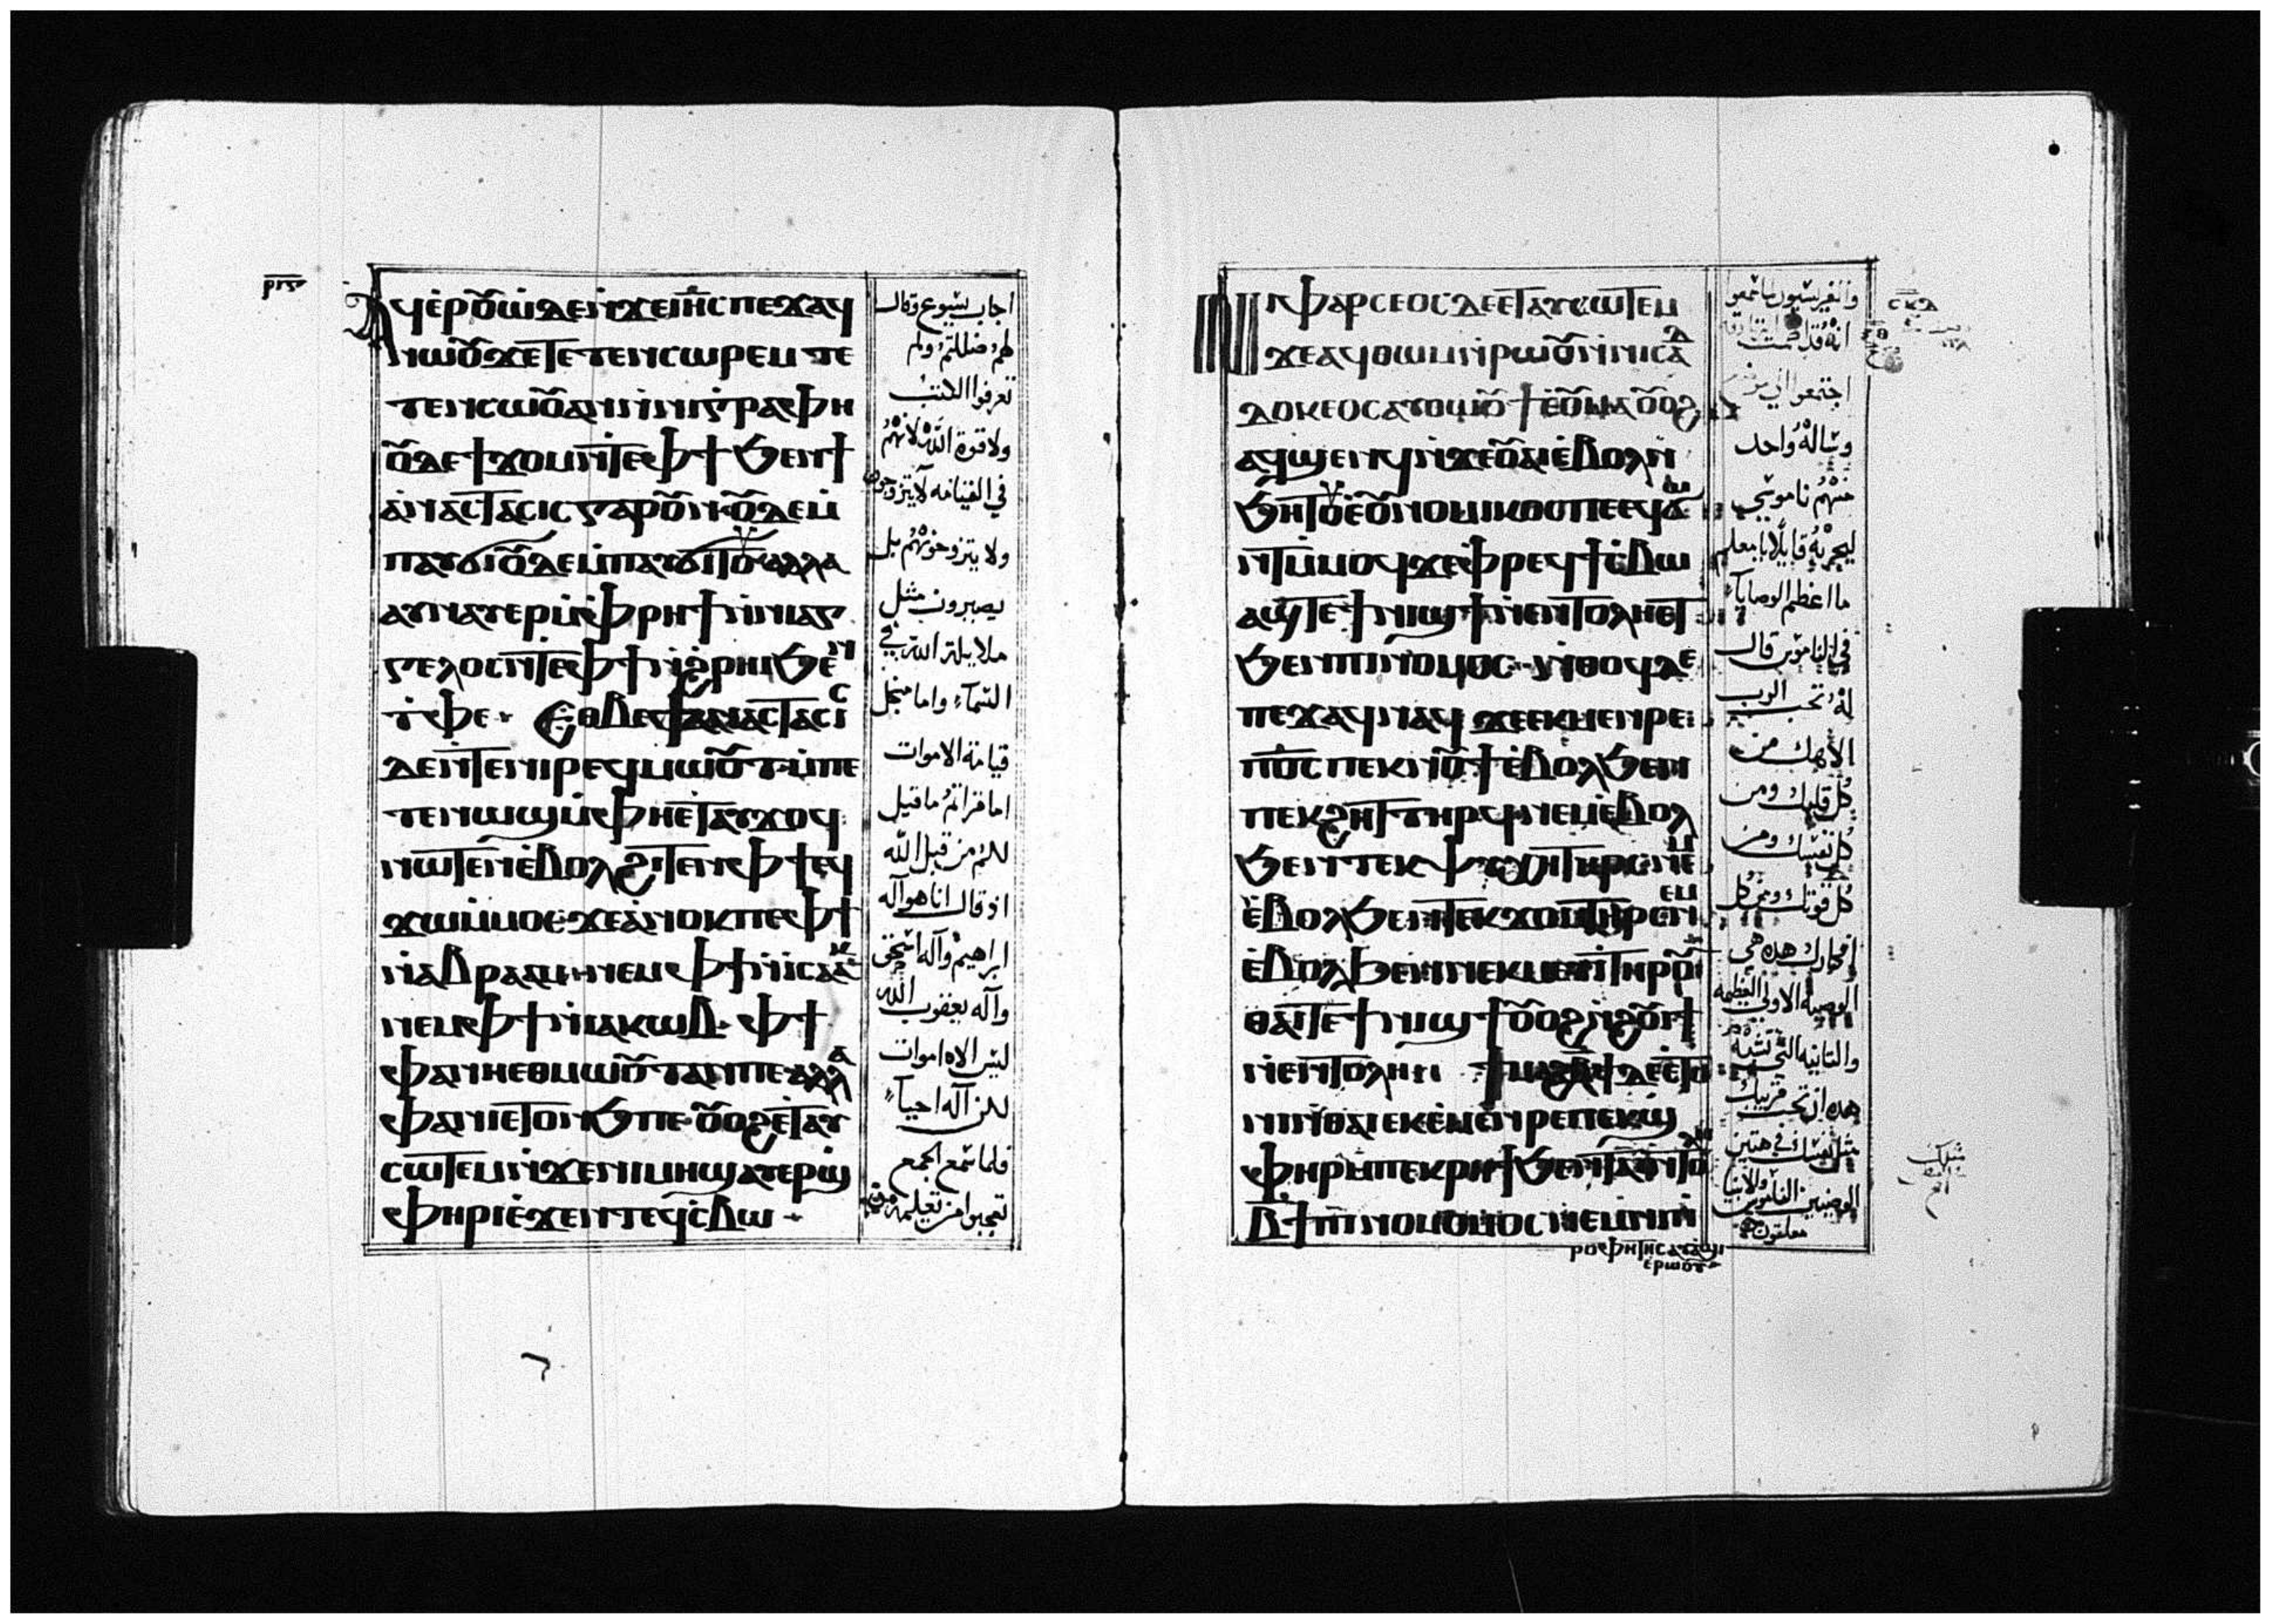 ⲣⲓⲋ
ⲁϥⲉⲣⲟⲩⲱ ⲇⲉ ⲛϫⲉ ⲓⲏⲥ ⲡⲉϫⲁϥ
ⲛⲱⲟⲩ ϫⲉ ⲧⲉⲧⲉⲛⲥⲱⲣⲉⲙ ⲧⲉ
ⲧⲉⲛⲥⲱⲟⲩⲛ ⲁⲛ ⲛⲛⲓⲅⲣⲁⲫⲏ
ⲟⲩⲇⲉ ϯϫⲟⲙ ⲛⲧⲉ ⲫϯ ϧⲉⲛ ϯ
ⲁⲛⲁⲥⲧⲁⲥⲓⲥ ⲅⲁⲣ ⲟⲩⲛ ⲟⲩⲇⲉ ⲙ
ⲡⲁⲩϭⲓ ⲟⲩⲇⲉ ⲙⲡⲁⲩϭⲓⲧⲟⲩ ⲁⲗⲗⲁ
ⲁⲩⲛⲁⲩⲉⲣ ⲙⲫⲣⲏϯ ⲛⲛⲓⲁⲅ
ⲅⲉⲗⲟⲥ ⲛⲧⲉ ⲫϯ ⲛϩⲣⲏⲓ ϧⲉⲛ
ⲧⲫⲉ · ⲉⲑⲃⲉ ϯⲁⲛⲁⲥⲧⲁⲥⲓⲥ
ⲇⲉ ⲛⲧⲉ ⲛⲓⲣⲉϥⲙⲱⲟⲩⲧ ⲙⲡⲉ
ⲧⲉⲛⲱϣ ⲙⲫⲏ ⲉⲧⲁⲩϫⲟϥ
ⲛⲱⲧⲉⲛ ⲉⲃⲟⲗ ϩⲓⲧⲉⲛ ⲫϯ ⲉϥ
ϫⲱ ⲙⲙⲟⲥ ϫⲉ ⲁⲛⲟⲕ ⲡⲉ ⲫϯ
ⲛⲁⲃⲣⲁⲁⲙ ⲛⲉⲙ ⲫϯ ⲛⲓⲥⲁⲁⲕ
ⲛⲉⲙ ⲫϯ ⲛⲓⲁⲕⲱⲃ · ⲫϯ
ⲫⲁ ⲛⲏ ⲉⲑⲙⲱⲟⲩⲧ ⲁⲛ ⲡⲉ ⲁⲗⲗⲁ
ⲫⲁ ⲛⲏ ⲉⲧⲟⲛϧ ⲡⲉ ⲟⲩⲟϩ ⲉⲧⲁⲩ
ⲥⲱⲧⲉⲙ ⲛϫⲉ ⲛⲓⲙⲏϣ ⲁⲩⲉⲣϣ
ⲫⲏⲣⲓ ⲉϫⲉⲛ ⲧⲉϥⲥⲃⲱ ·
اجاب يسوع وقال
لهم ضللتم ولم
تعرفوا الكتب
ولا قوة الله لانهم
في القيامه لا يتزوجون
ولا يتزوجونهم بل
يصيرون مثل
ملايكة الله في
السماء واما من اجل
قيامة الاموات
اما قراتم ما قيل
لكم من قبل الله
اذ قال انا هو اله
ابراهيم واله اسحق
واله يعقوب الله
ليس اله اموات
لكن اله احياء
فلما سمع الجمع
تعجبوا من تعليمه
ⲛⲓⲫⲁⲣⲓⲥⲉⲟⲥ ⲇⲉ ⲉⲧⲁⲩⲥⲱⲧⲉⲙ
ϫⲉ ⲁϥⲑⲱⲙ ⲛⲣⲱⲟⲩ ⲛⲛⲓⲥⲁⲇ
ⲇⲟⲕⲉⲟⲥ ⲁⲩⲑⲱⲟⲩϯ ⲉⲩⲙⲁ ⲟⲩⲟϩ
ⲁϥϣⲉⲛϥ ⲛϫⲉ ⲟⲩⲁⲓ ⲉⲃⲟⲗ ⲛ
ϧⲏⲧⲟⲩ ⲉⲟⲩⲛⲟⲙⲓⲕⲟⲥ ⲡⲉ ⲉϥϭⲱ
ⲛⲧ ⲙⲙⲟϥ ϫⲉ ⲫⲣⲉϥϯⲥⲃⲱ
ⲁϣ ⲧⲉ ϯⲛⲓϣϯ ⲛⲉⲛⲧⲟⲗⲏ ⲉⲧ
ϧⲉⲛ ⲡⲓⲛⲟⲙⲟⲥ · ⲛⲑⲟϥ ⲇⲉ
ⲡⲉϫⲁϥ ⲛⲁϥ ϫⲉ ⲉⲕⲉⲙⲉⲛⲣⲉ
ⲡϭⲥ ⲡⲉⲕⲛⲟⲩϯ ⲉⲃⲟⲗ ϧⲉⲛ
ⲡⲉⲕϩⲏⲧ ⲧⲏⲣϥ ⲛⲉⲙ ⲉⲃⲟⲗ
ϧⲉⲛ ⲧⲉⲕⲯⲩⲭⲏ ⲧⲏⲣⲥ ⲛⲉⲙ
ⲉⲃⲟⲗ ϧⲉⲛ ⲧⲉⲕϫⲟⲙ ⲧⲏⲣⲥ ⲛⲉⲙ
ⲉⲃⲟⲗ ϧⲉⲛ ⲛⲉⲕⲙⲉⲩⲓ ⲧⲏⲣⲟⲩ
ⲑⲁⲓ ⲧⲉ ϯⲛⲓϣϯ ⲟⲩⲟϩ ⲛϩⲟⲩⲓϯ
ⲛⲉⲛⲧⲟⲗⲏ ϯⲙⲁϩⲃϯ ⲇⲉ ⲉⲧⲟ
ⲛⲓ ⲛⲑⲁⲓ ⲉⲕⲉⲙⲉⲛⲣⲉ ⲡⲉⲕϣ
ⲫⲏⲣ ⲙⲡⲉⲕⲣⲏϯ ϧⲉⲛ ⲧⲁⲓⲉⲛⲧⲟⲗⲏ
ⲃϯ ⲡⲓⲛⲟⲙⲟⲥ ⲛⲉⲙ ⲛⲓⲡ
ⲣⲟⲫⲏⲧⲏⲥ ⲁⲩⲁϣⲓ
ⲉⲣⲱⲟⲩ
والفريسيون لما سمعوا
انه قد اصمت الزنادقه
اجتمعوا
وساله واحد
منهم ناموسي
ليجربه قايلا يا معلم
ما اعظم الوصايا
في الناموس قال
له تحب الرب
الاهك من
كل قلبك ومن
كل نفسك ومن
كل قوتك ومن كل
افكارك هذه هي
الوصيه الاولى العظيمه
والثانيه التي تشبه
هذه ان تحب قريبك
مثل نفسك في هتين
الوصيتين الناموس والانبيا
معلقون
ⲥⲕⲇ